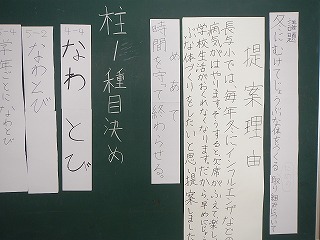 冬にむけてじょうぶな体をつくる取り組みについて
提案理由
長与小では、毎年冬にインフルエンザなど
病気がはやります。そうすると欠席がふえて楽しい
学校生活がおくれなくなります。だから早めにじょう
ぶな体つくりをしたいと思い提案しました
めあて
時間を守って終わらせる。
柱1 種目決め
4-4
なわとび
5-2
なわとび
5-4
学年ごとになわとび